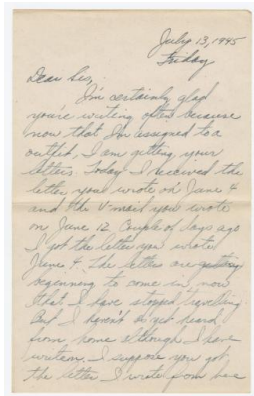 July 13, 1945
Friday
Dear Sis,
I'm certainly glad
you're writing often because
now that I'm assigned to a
outfit, I am getting your
letters. Today I received the
letter you wrote on June 4
and the V-mail you wrote
on June 12. Couple of days ago
I got the letter you wrote
June 9. The letters are getting
beginning to come in now
that I have stopped travelling.
But I haven't as yet heard
from home although I have
written. I suppose you got
the letter I wrote from here